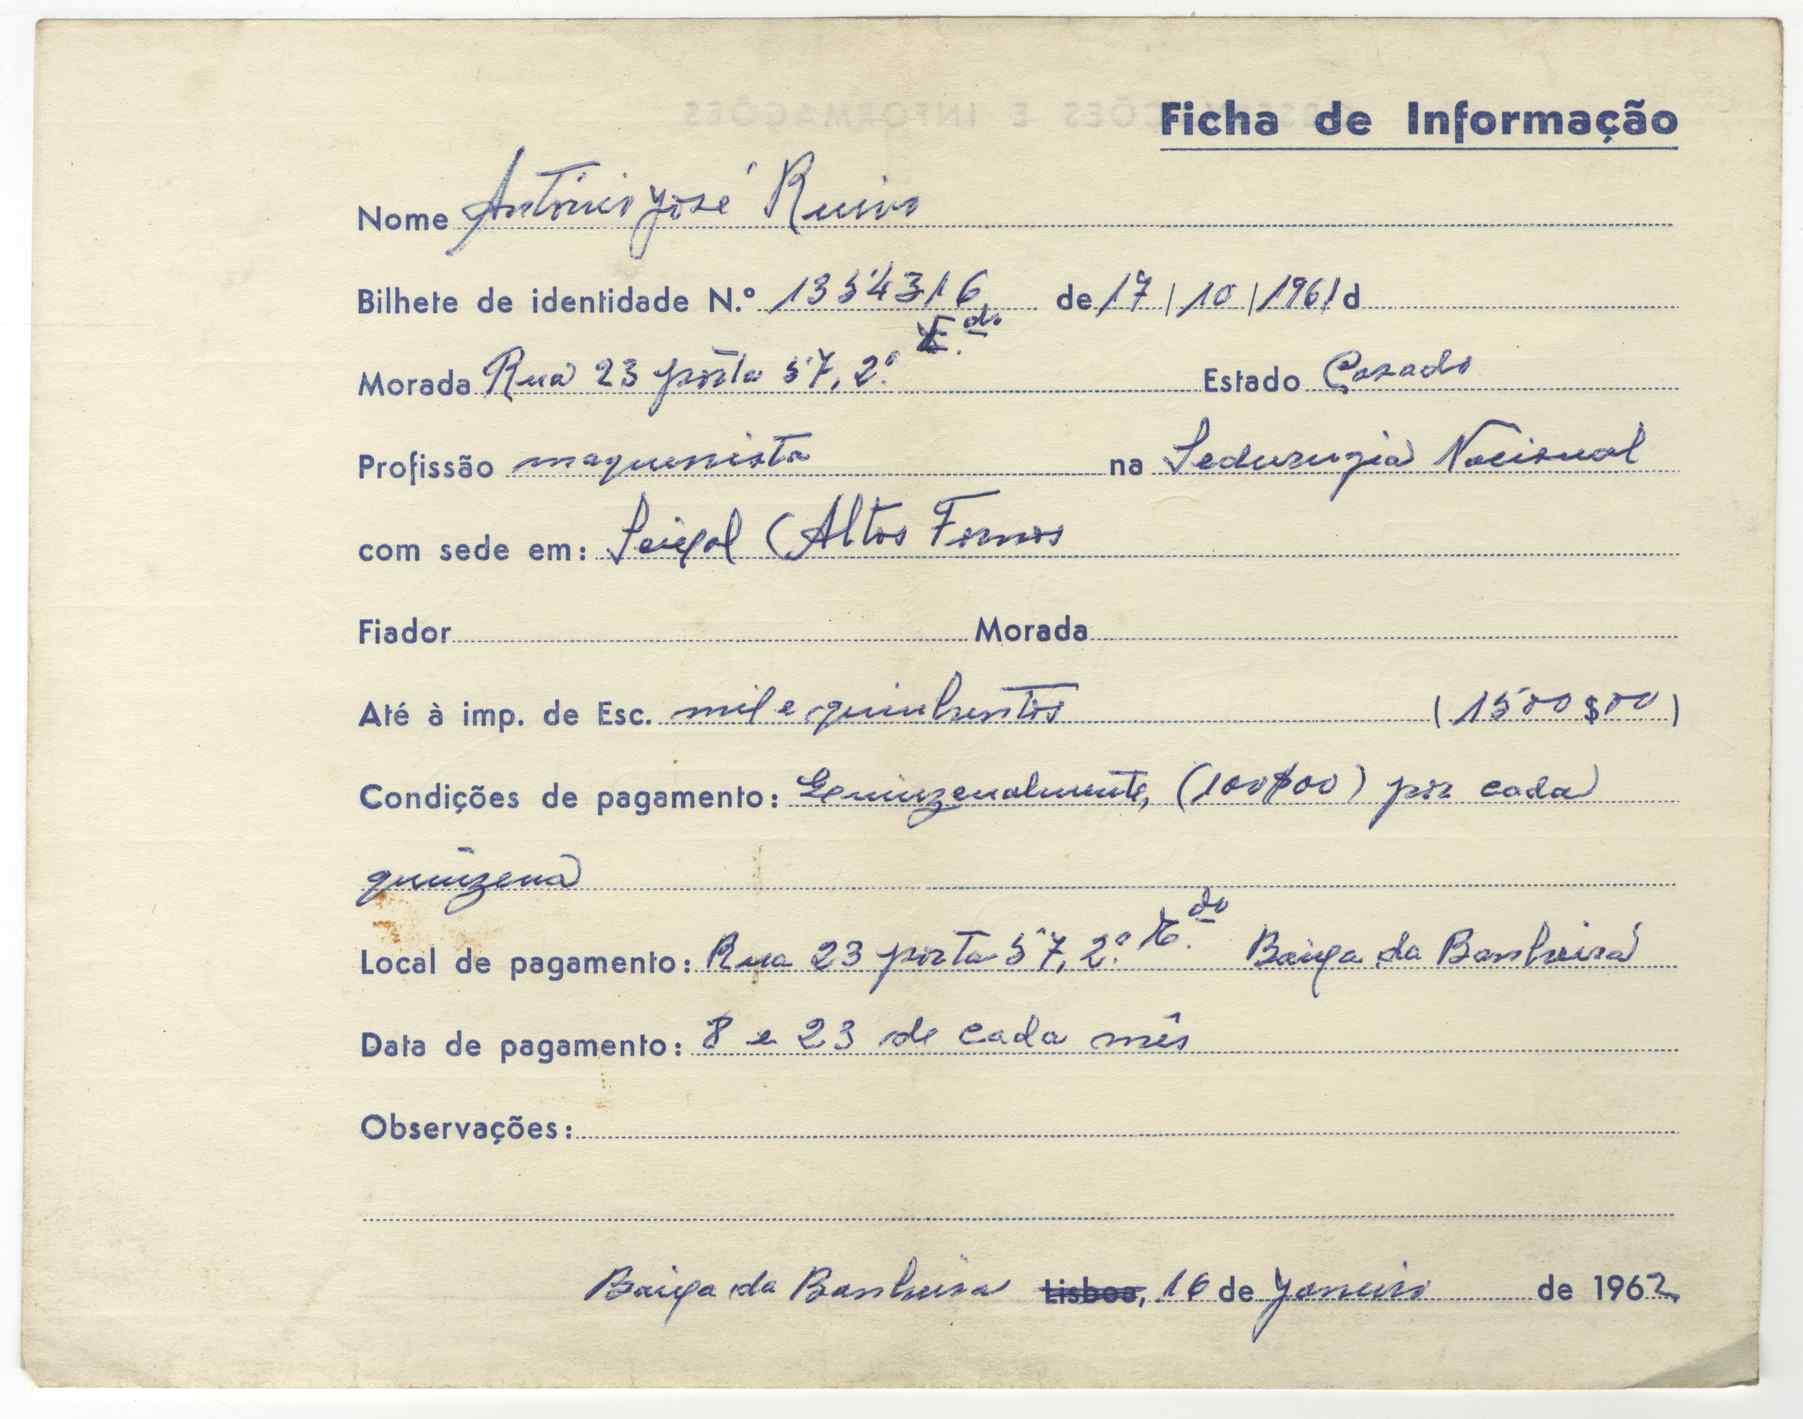 Ficha de Informação
Nome António José Ruivo
Bilhete de identidade N.º 1354316 de 17/10/1961 d
Morada Rua 23 porta 57, 2.º E.do Estado Casado
Profissão maquenista na Sedurugia Nacional
com sede em: Seixal (Altos Fornos
Fiador Morada
Até à imp. de Esc. mil e quinhentos (1500$00)
Condições de pagamento: (100$00) por cada
quinzena
Local de pagamento: Rua 23 porta 57, 2.º E.do Baixa da Banheira
Data de pagamento: 8 e 23 de cada mês
Observações:
Baixa da Banheira Lisboa, 16 de Janeiro de 1962